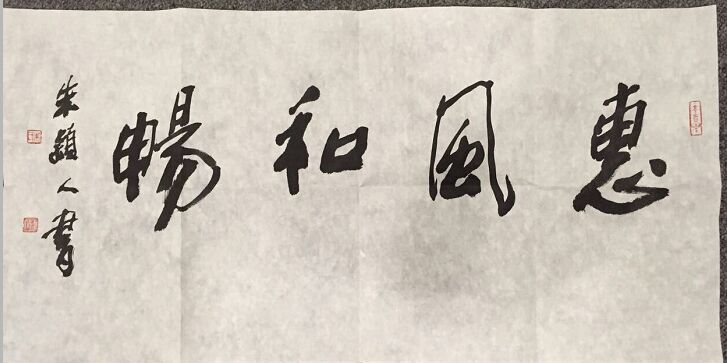 惠風和暢
朱穎人書